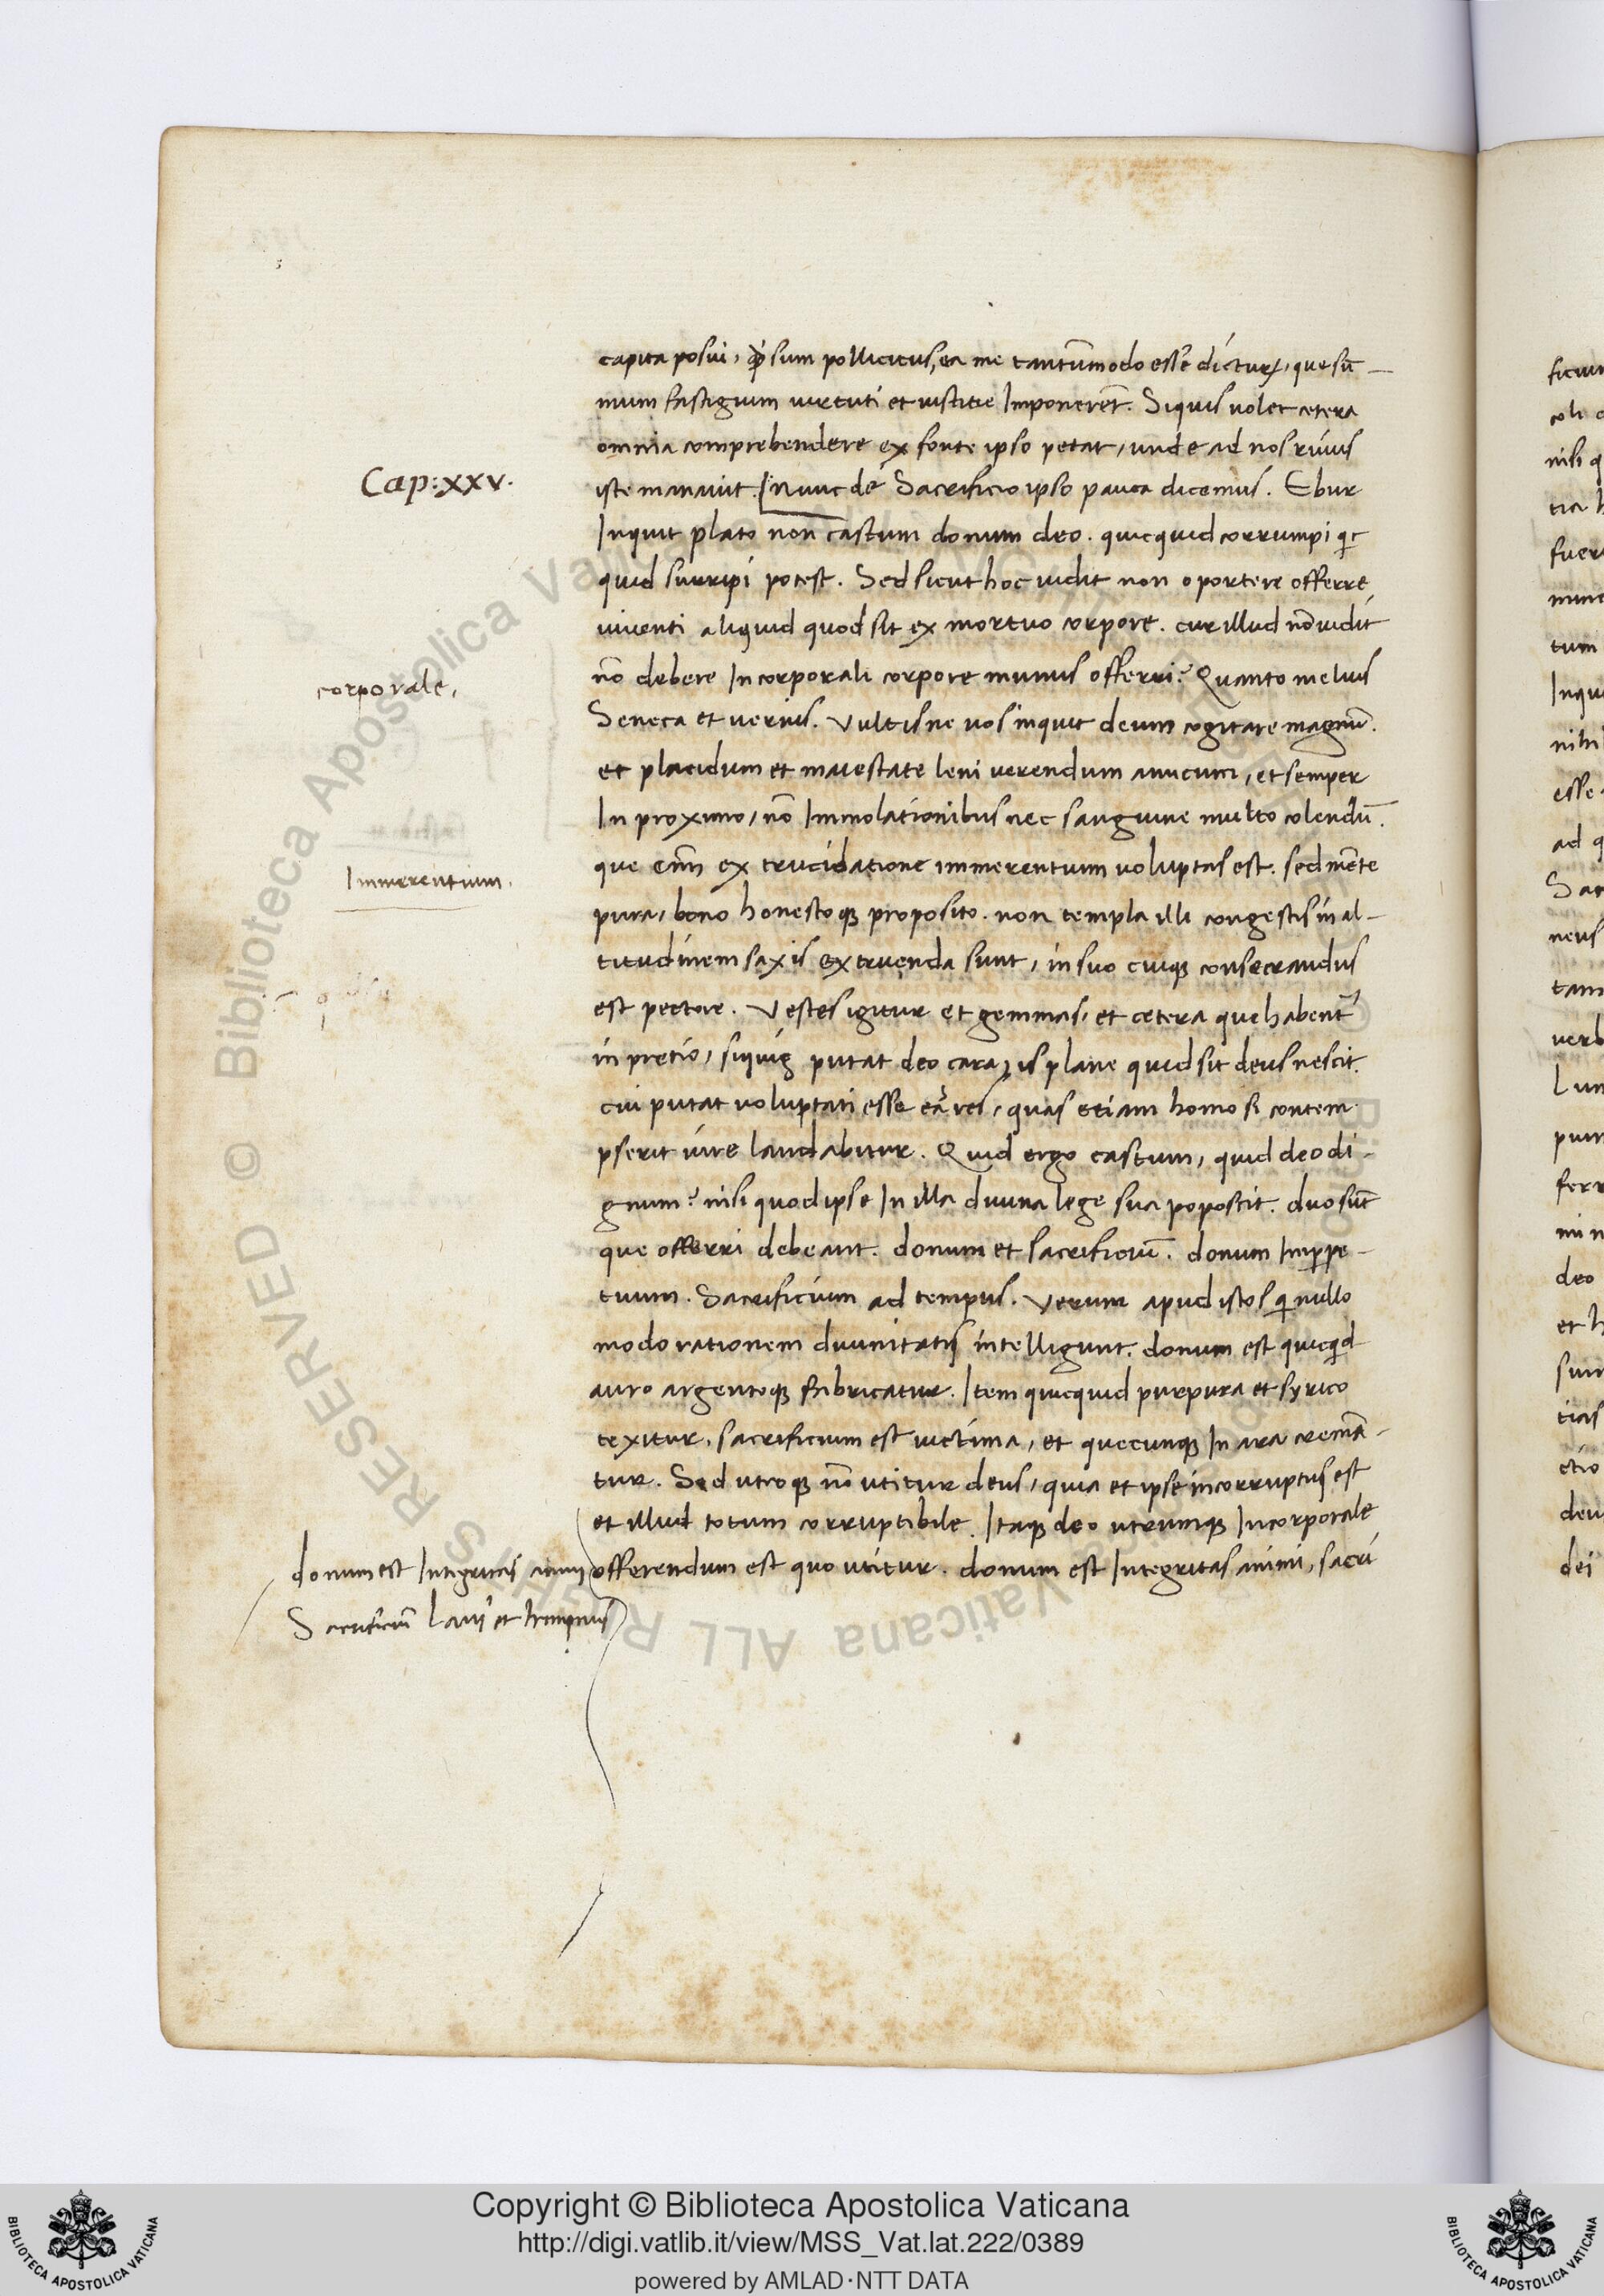 capita posui, qͥ sum pollicitus, ea me tantūmodo esse dicturꝝ, que sū-
mum fastigium uirtuti et iustitie Imponerēt. Siquis uolet cetera
omnia comprehendere ex fonte ipso petat, unde ad nos riuus
Cap: xxv.
iste manauit. [nunc de Sacrificio ipso pauca dicemus. Ebur
Inquit plato non castum donum deo. quicquid corrumpi qͥc
quid surripi potest. Sed sicut hoc uidit non oportere offerre
uiuenti aliquid quod sit ex mortuo corpore. cur illud nō uidit
corporale,
nō debere Incorporali corpore munus offerri? Quanto melius
Seneca et uerius. Vultisne uos inquit deum cogitare magnū.
et placidum et maiestate leni verendum amicum, et semper
In proximo, nō Immolationibus nec sanguine multo colendū.
Immerentium.
que enī ex trucidatione immerentum uoluptas est. sed mēte
pura, bono honestoqꝫ proposito. non templa illi congestis in al-
titudinem saxis extruenda sunt, in suo cuiqꝫ consecrandus
est pectore. Vestes igitur et gemmas, et cetera que habent᷑
in pretio, siquis putat deo cara, is plane quid sit deus nescit.
cui putat uoluptati esse eas res, quas etiam homo si contem
pserit iure laudabitur. Quid ergo castum, quid deo di-
gnum? nisi quod ipse In illa diuina lege sua poposcit. duo sūt
que offerri debeant. donum et sacrificiū. donum Inꝑpe-
tuum. Sacrificium ad tempus. Verum apud istos qͥ nullo
modo rationem diuinitatis intelligunt. donum est quicqͥd
auro argentoqꝫ fabricatur. Item quicquid purpura et syrico
texitur, sacrificium est uictima, et quecunqꝫ In ara cremā-
tur. Sed utroqꝫ nō utitur deus, quia et ipse incorruptus est
et illud totum corruptibile. Itaqꝫ deo utrumqꝫ Incorporale
offerendum est quo utitur. donum est Integritas animi, sacri
donum est Integritas animi
Sacrificiū laus et hympnus
Copyright © Biblioteca Apostolica Vaticana
http://digi.vatlib.it/view/MSS_Vat.lat.222/0389
powered by AMLAD·NTT DATA